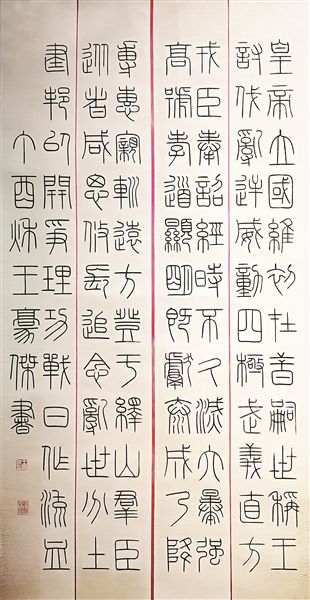 皇帝立國維初在昔嗣世稱王
討伐亂逆威動四極武義直方
戎臣奉詔經時不久滅六暴強
高號孝道顯明既獻泰成乃降
專惠寴巡遠方登于繹山群臣
從者咸思攸長追念亂世分土
建邦以開爭理功戰日作流血
丁酉秌王豪傑書